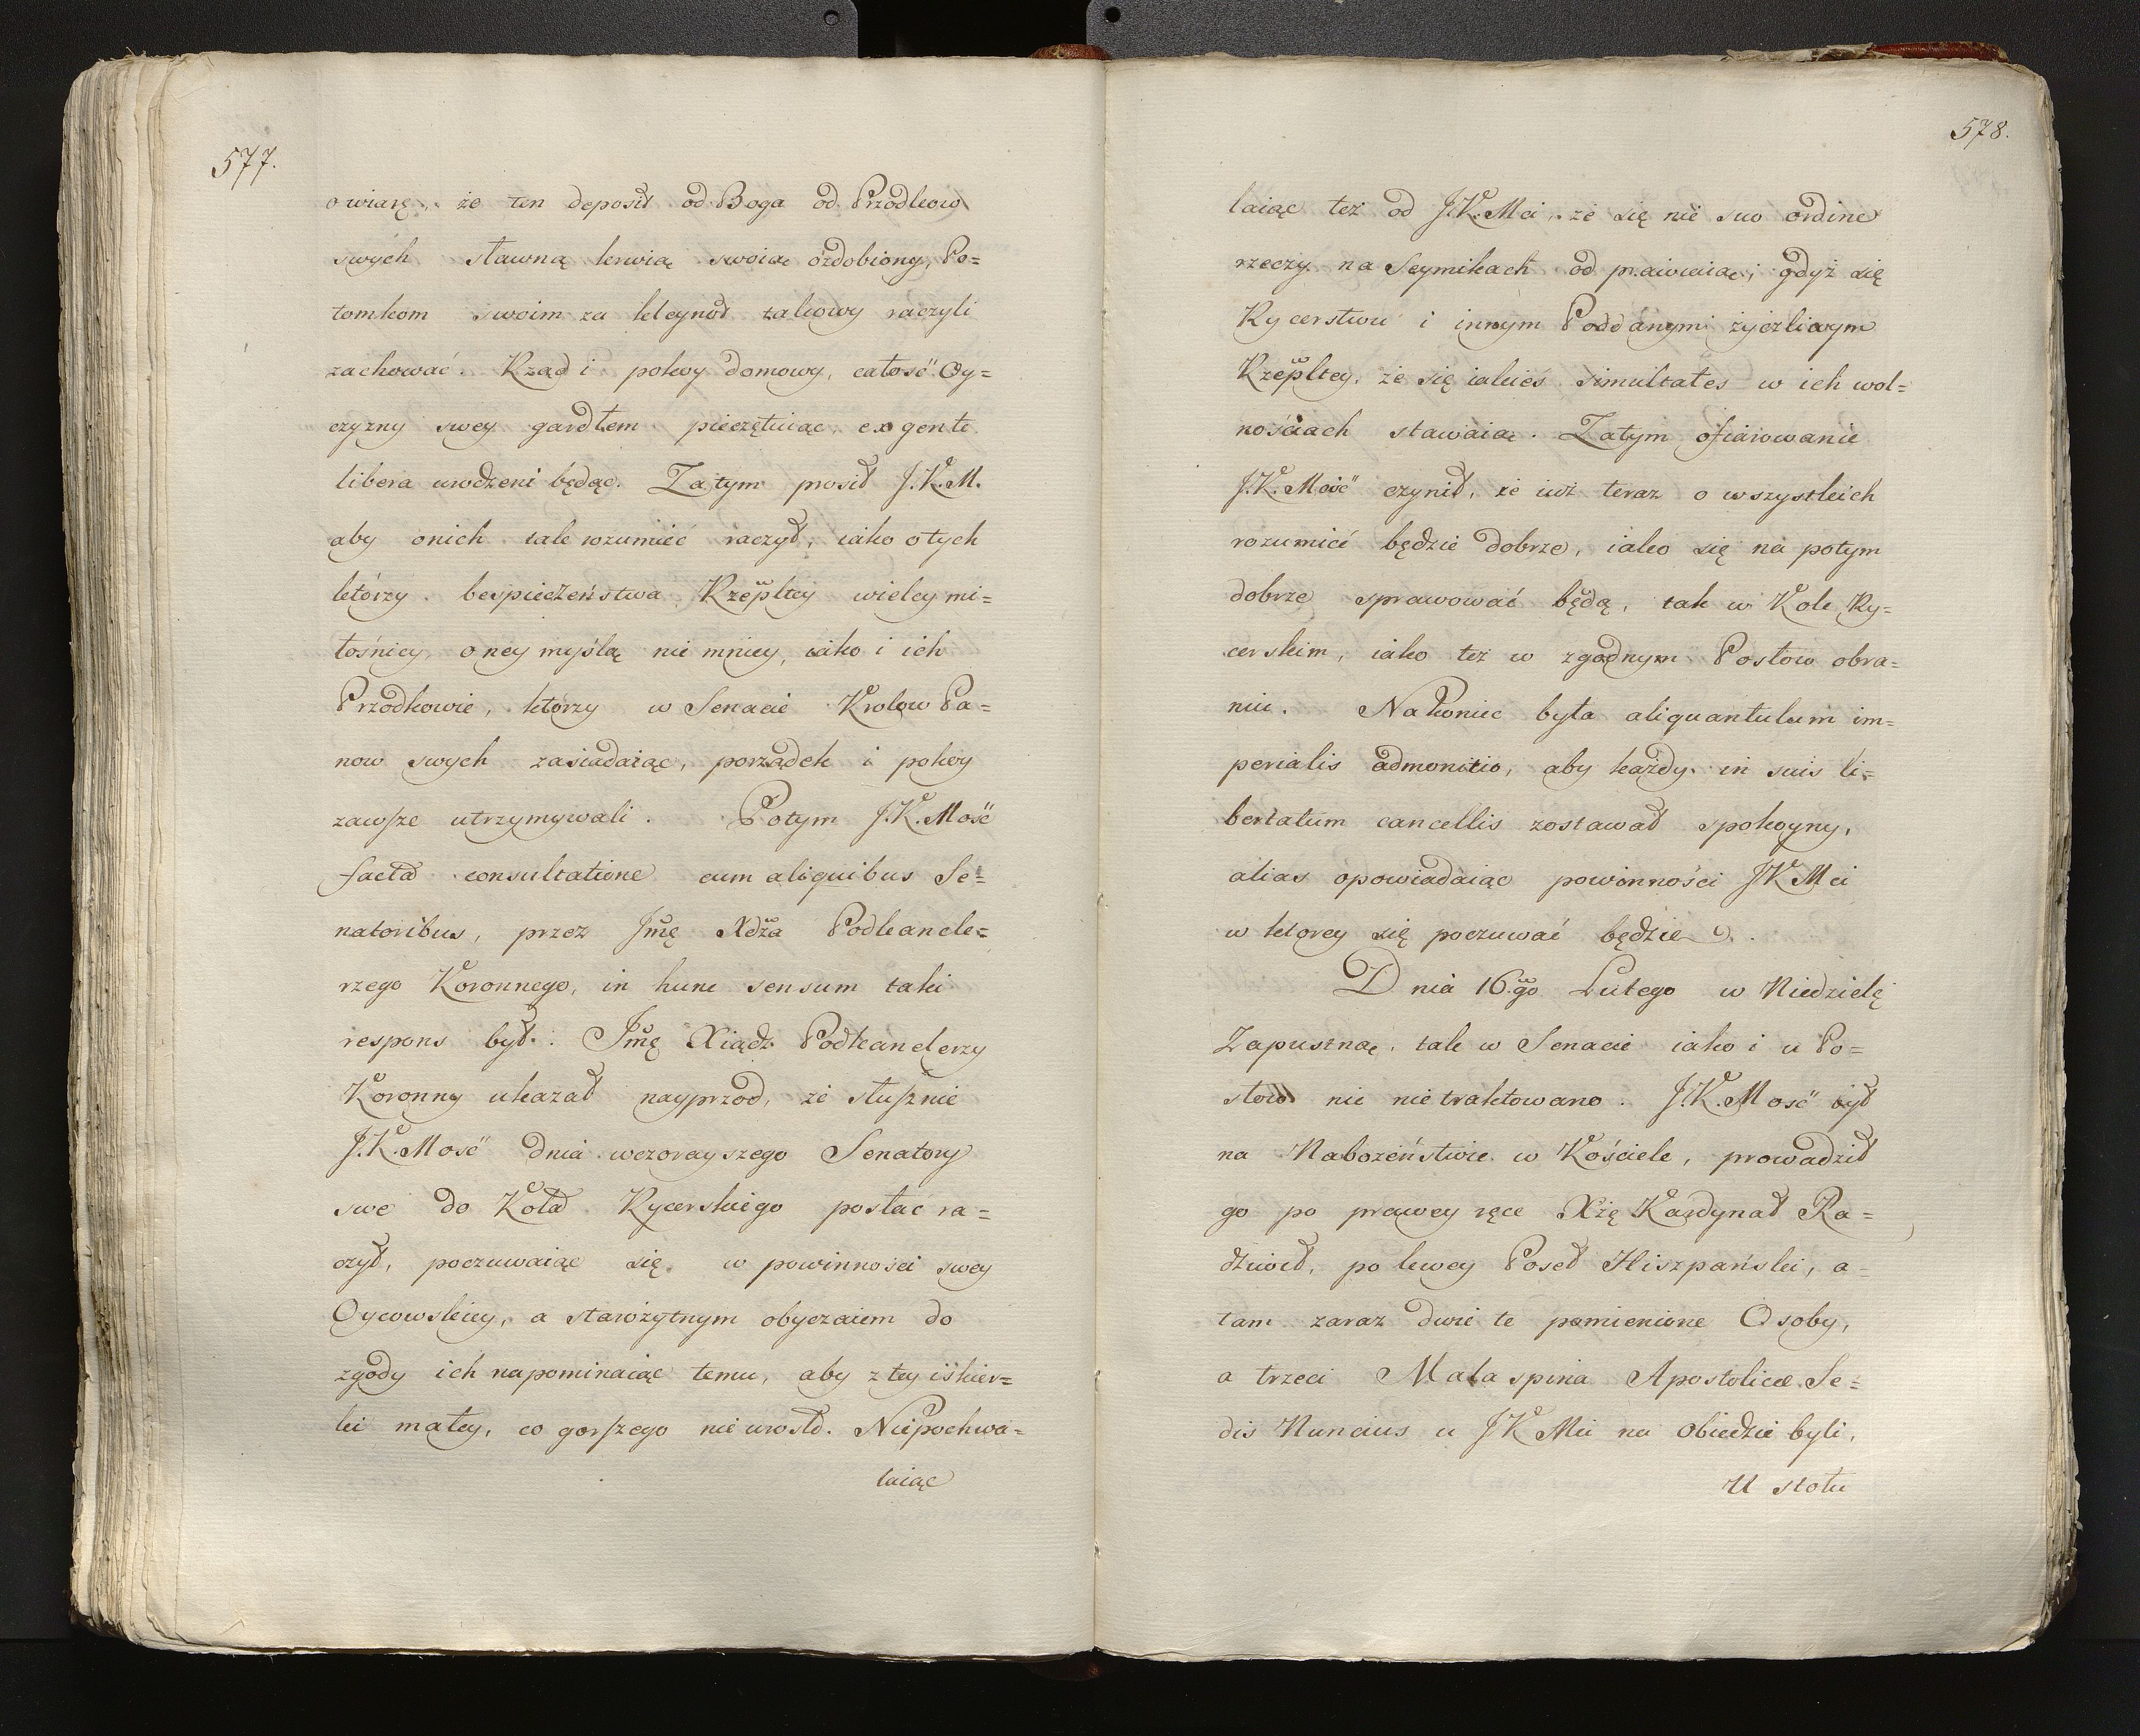 577.
o wiarę, że ten deposit od Boga od Przodkow
swych sławną krwią swoią ozdobiony, Po=
tomkom swoim za kleynot takowy raczyli
zachować. Rząd i pokoy domowy, całość Oy=
czyzny swey gardłem pieczętuiąc, ex gente
libera urodzeni będąc. Zatym prosił J.K.M.
aby onich tak rozumieć raczył, iako otych
którzy bespieczeństwa Rzepltey wielcy mi=
łośnicy, o ney myślą nie mniey, iako i ich
Przodkowie, którzy w Senacie Krolow Pa=
now swych zasiadaiąc, porządek i pokoy
zawsze utrzymywali. Potym J.K.Mość
facta consultatione cum aliquibus Se=
natoribus, przez Jmę Xdza Podkancle=
rzego Koronnego, in hunc sensum taki
respons był: Jmę Xiądz Podkanclerzy
Koronny ukazał nayprzod, że słusznie
J.K.Mość dnia wczorayszego Senatory
swe do Koła Rycerskiego posłać ra=
czył, poczuwaiąc się w powinności swey
Oycowskiey, a starożytnym obyczaiem do
zgody ich napominaiąc temu, aby z tey iskier=
ki małey, co gorszego nie urosło. Niepochwa=
laiąc
578.
laiąc też od J.K.Mci, że się nie suo ordine
rzeczy na Seymikach odprawuią; gdyż się
Rycerstwu i innym Poddanym życzliwym
Rzepltey, że się iakieś simultates w ich wol=
nościach stawaią. Zatym ofiarowanie
J.K.Mość czynił, że iuż teraz o wszystkich
rozumieć będzie dobrze, iako się na potym
dobrze sprawować będą, tak w Kole Ry=
cerskim, iako też w zgodnym Posłow obra=
niu. Nakoniec była aliquantulum im=
perialis admonitio, aby każdy in suis li=
bertatum cancellis zostawał spokoyny,
alias opowiadaiąc powinności JKMci
w ktorey się poczuwać będzie.
Dnia 16.go Lutego w Niedzielę
Zapustną, tak w Senacie iako i u Po=
słow nic nie traktowano. J.K.Mość był
na Nabożeństwie w Kościele, prowadził
go po prawey ręce Xżę Kardynał Ra=
dziwił, po lewey Poseł Hiszpański, a
tam zaraz dwie te pomienione Osoby,
a trzeci Malaspina Apostolicæ Se=
dis Nuncius u JKMci na Obiedzie byli,
U stołu